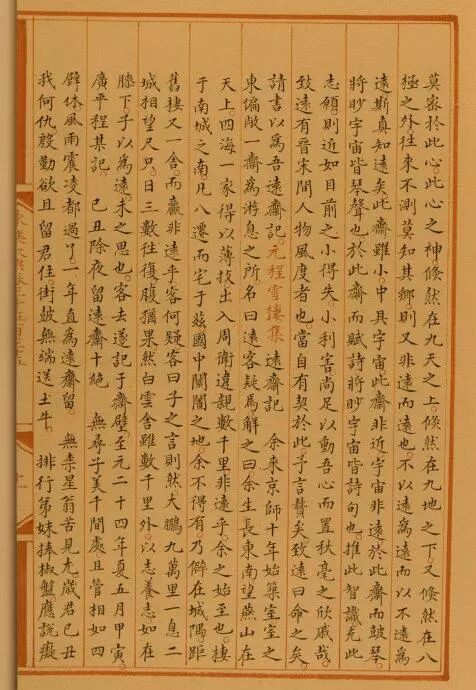 莫於此心。此心之神倏然在九天之上。倏然在九地之下。又倏然在八
極之外。往來不測。莫知其鄉。則又非遠而遠也。不以遠為遠而以不遠為
遠。斯真知遠矣。此齋雖小。中具宇宙。此齋非近。宇宙非遠。於此齋而鼓琴。
將眇宇宙皆琴聲也。於此齋而賦詩。將眇宇宙皆詩句也。推此智識。充此
志願。則近如目前之小得失小利害。尚足以動吾心而置秋毫之欣戚哉。
致遠有晉宋間人物風度者也。當自有契於此。予言贅矣。致遠曰。命之矣。
請書以為吾遠齋記。元程雪樓集 遠齋記 余來京師十年。始築室。室之
東偏敞一齋為游息之所。名曰遠。客疑焉。解之曰。余生長東南。望燕山在
天上。四海一家。得以薄技出入周衛。違親數千里。非遠乎。余之始至也。棲
于南城之南。凡八遷而宅于茲。國中闤闠之地。余不得有。乃僻在城隅。距
舊棲又一舍而贏。非遠乎。客何疑。客曰。子之言則然。大鵬九萬里一息。二
城相望尺只。日三數往復。腹猶果然。白雲舍雖數千里外。以志養志。如在
膝下。子以為遠。未之思也。客去。遂記于齋壁。至元二十四年夏五月甲寅。
廣平程某記。 己丑除夜留遠齋十絕 無尋子美千間處。且管相如四
壁休。風雨震凌都過了。一年直為遠齋留。 無柰星翁苦見尤。歲君己丑
我何仇。殷勤欲且留君住。街鼓無端送土牛。 排行弟妹捧椒盤。應說癡